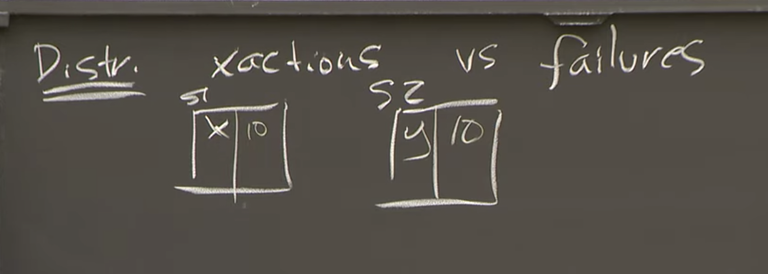 Distr. xactions vs failures
S1 S2
x 10 y 10